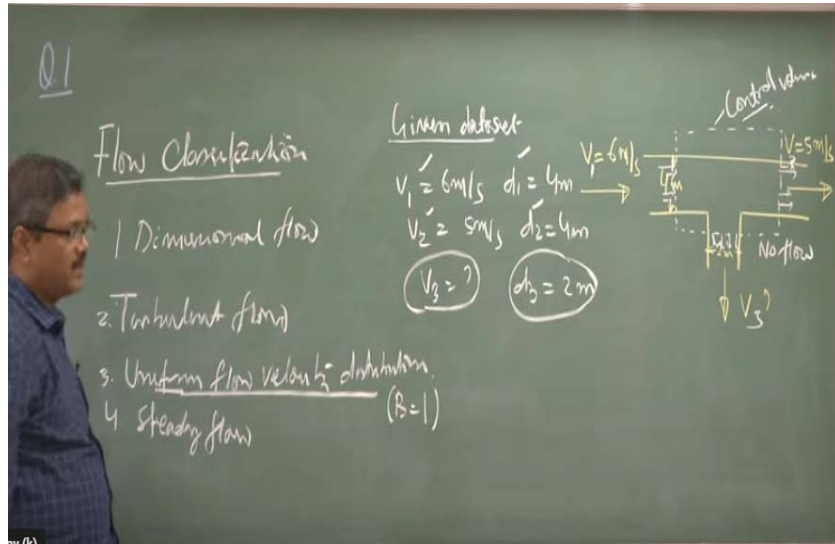 Q.1
Flow Classification
1 Dimensional flow
2. Turbulent flow
3. Uniform flow velocity distribution.
(B=1)
4 Steady flow
Given dataset
V1 = 6m/s d1 = 4m
V2 = 5m/s d2 = 4m
V3 = ? d3 = 2m
Control volume
V1= 6m/s
V=5m/s
2m
No flow
V3?